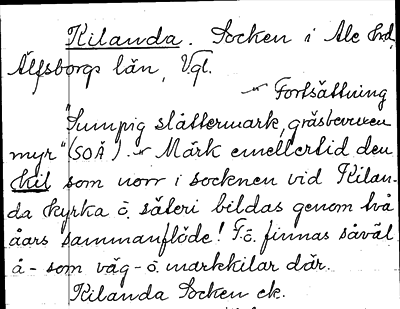 Kilanda. Socken i Ale hd,
Älfsborgs län, Vgl.
~ Fortsättning
"Sumpig slåttermark, gräsbevuxen
myr" (SOÄ). ~ Märk emellertid den
kil som norr i socknen vid Kilan-
da kyrka o. säteri bildas genom två
åars sammanflöde! F.ö. finnas såväl
å- som väg- o. markkilar där.
Kilanda Socken ek.